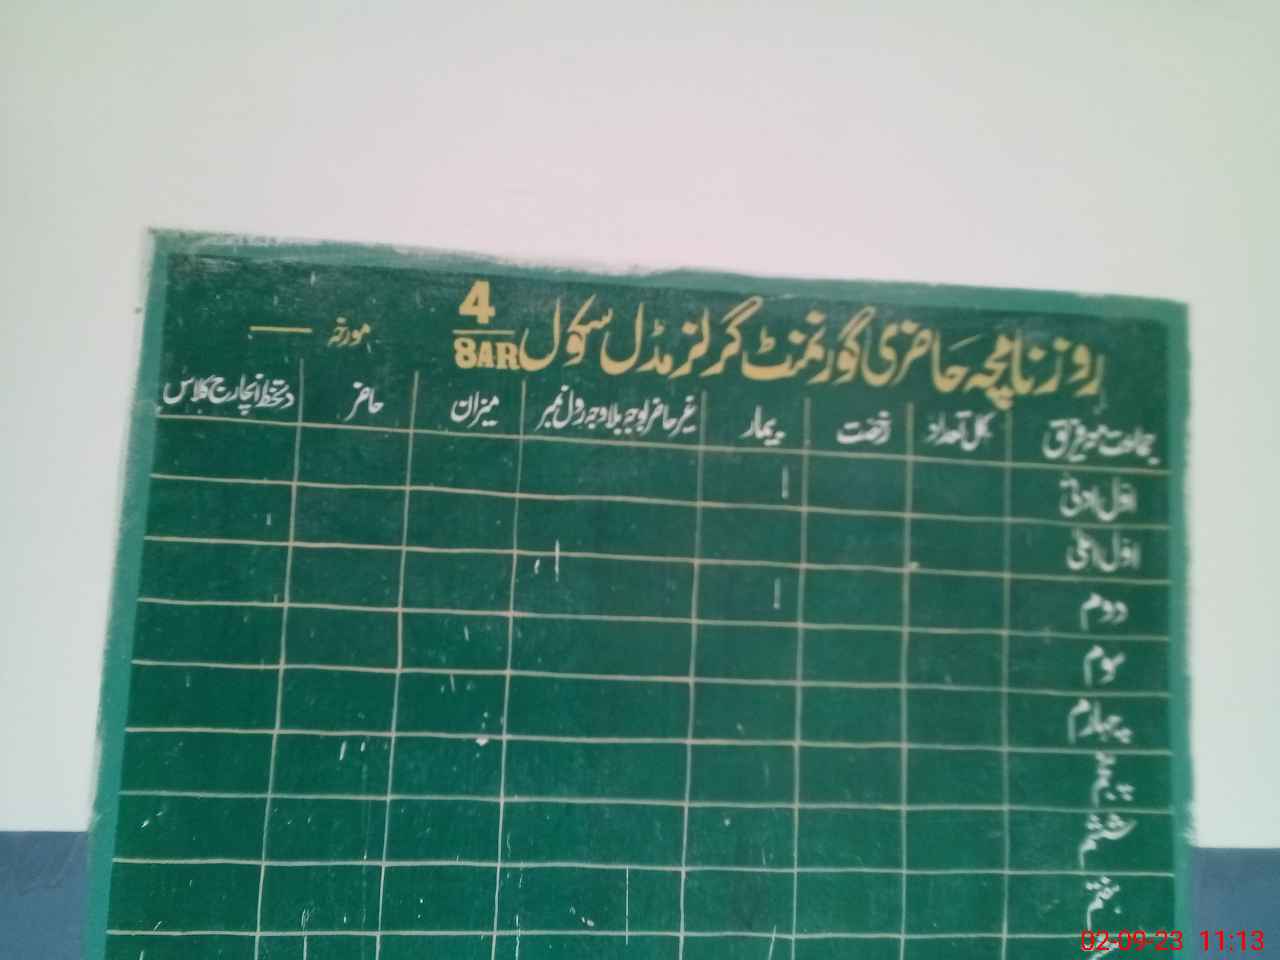 روزنامچہ حاضری گورنمنٹ گرلز مڈل سکول 4/8AR
مورخہ
جماعت مع فریق کل تعداد رخصت بیمار غیر حاضر بوجہ بلاوجہ رول نمبر میزان حاضر دستخط انچارج کلاس
اول ادنیٰ
اول اعلیٰ
دوم
سوم
چہارم
پنجم
ششم
ہفتم
02-09-23 11:13